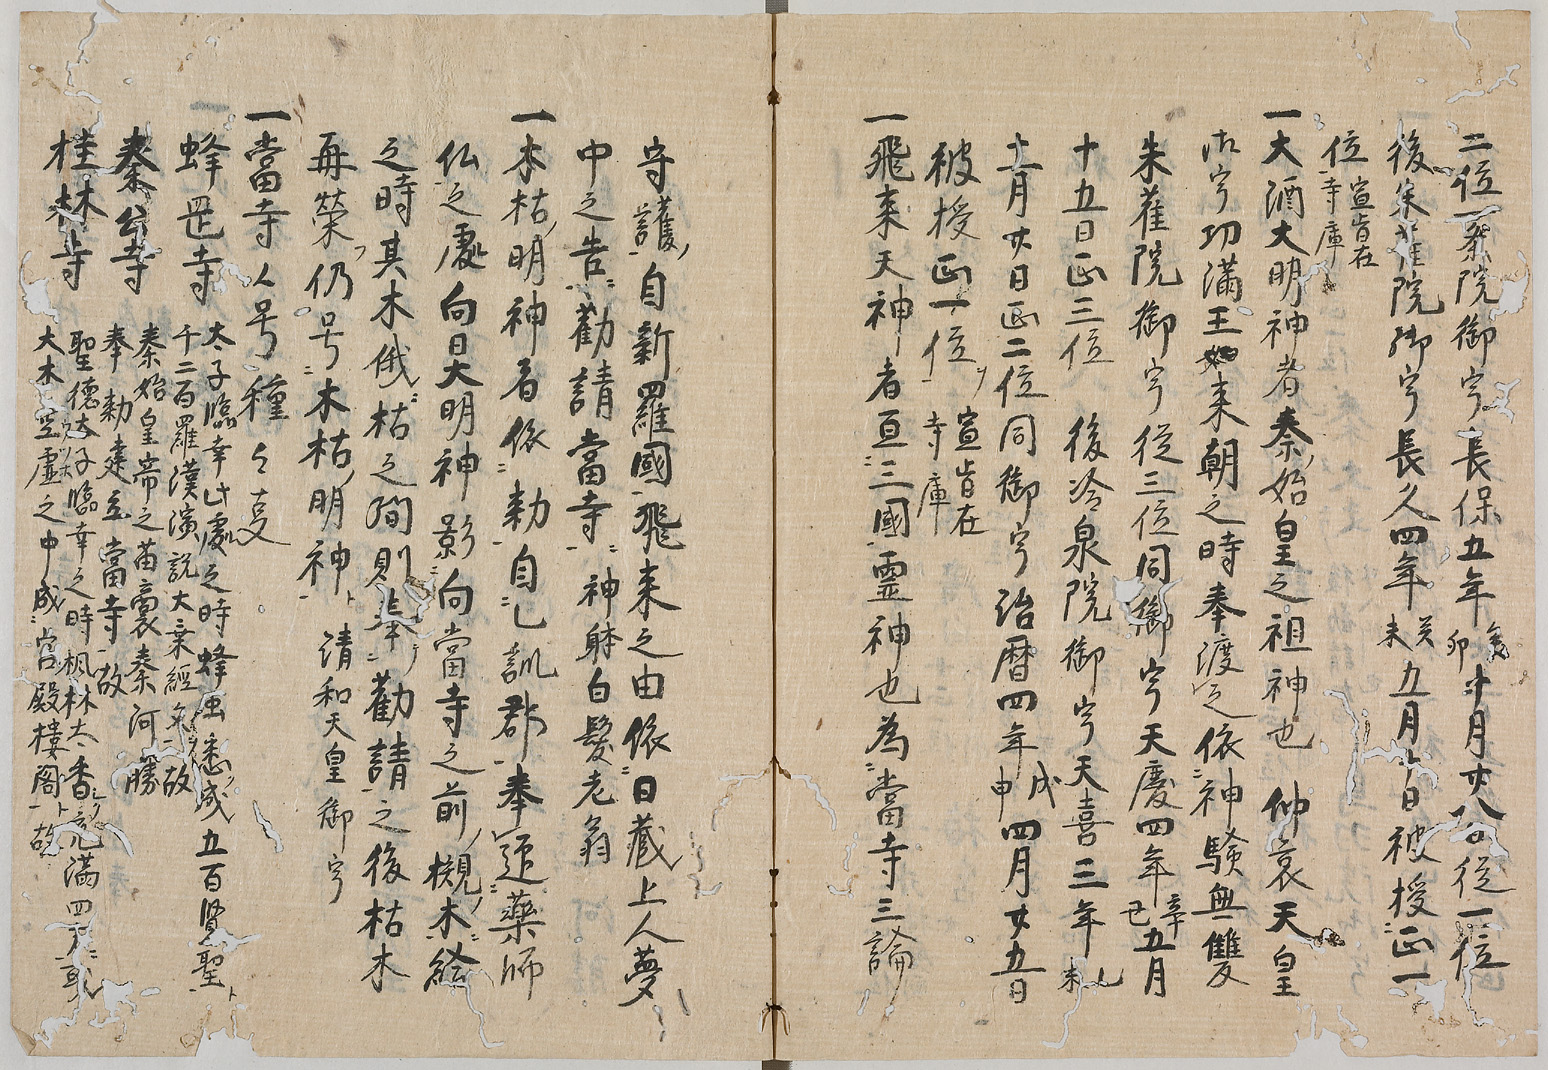 二位一条院御宇長保五年癸卯十月廿八日従一位
後朱雀院御宇長久四年癸未五月七日被授正一
位宣旨在寺庫
一大酒大明神者秦始皇之祖神也仲哀天皇
御宇功満王来朝之時奉渡之依神験無雙
朱雀院御宇従三位同御宇天慶四年辛巳五月
十五日正三位後冷泉院御宇天喜三年乙未
十二月廿日正二位同御宇治暦四年戊申四月廿五日
被授正一位宣旨在寺庫
一飛来天神者亘三国霊神也為当寺三論
守護自新羅國飛来之由依日蔵上人夢
中之告勧請当寺神躰白髪老翁
一木枯明神者依勅自乙訓郡奉迎薬師
仏之處向日大明神影向当寺之前槻木絵
之時其木俄枯之間則奉勧請之後枯木
再榮仍号木枯明神清和天皇御宇
一當寺之号種々之事
蜂罡寺太子臨幸此處之時蜂虫悉成五百賢聖
千二百羅漢演説大乗経矣故
秦公寺秦始皇帝之苗裔秦河勝
奉勅建立當寺故
桂林寺聖徳太子臨幸之時楓林太香充満四方聖
大木空虚之中成宮殿樓閣故